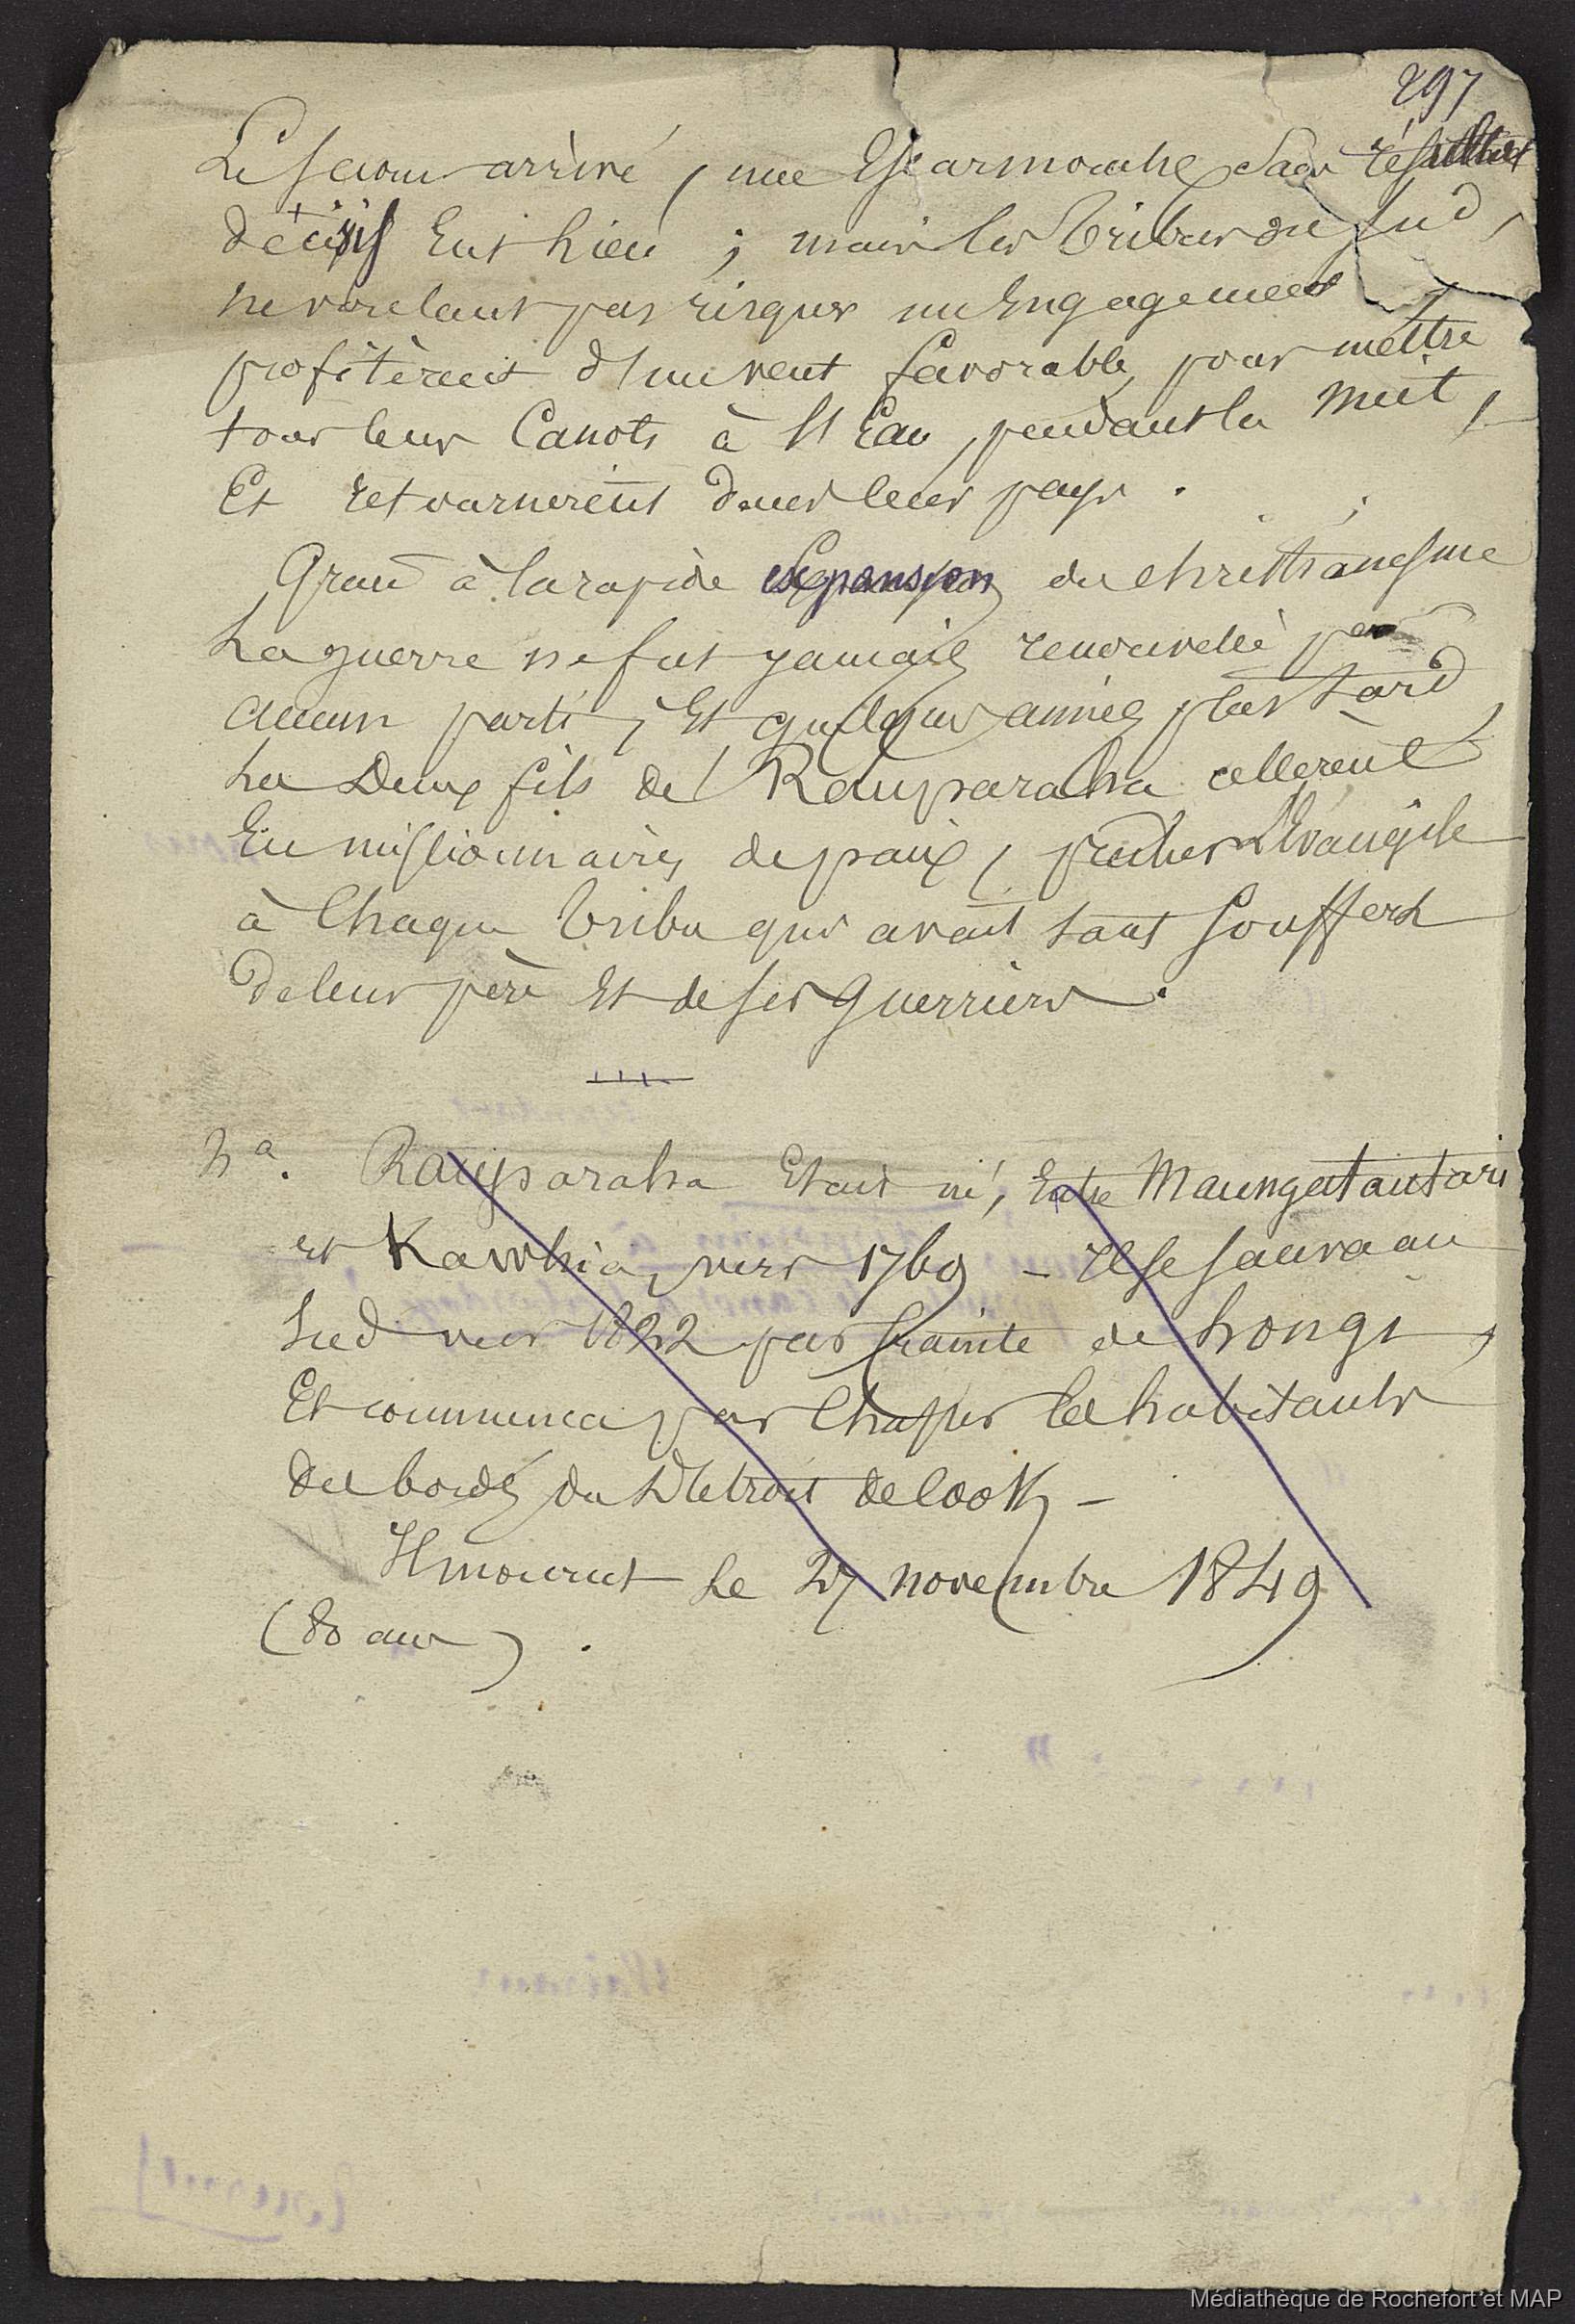 297
Le secours arrivé, une Escarmouche sans résultat
décisif Eut Lieu ; mais les Tribus du Sud,
ne voulant pas risquer un Engagement
profitèrent d'un vent favorable, pour mettre
tous leurs Canots à l'Eau, pendant la Nuit,
Et retournerent dans leur pays.
Grace à la rapide expansion du christianisme
La guerre ne fut jamais renouvelée par
aucun parti, Et quelques années plus tard,
Les Deux fils de Rauparaha allerent
En missionnaires de paix, precher l'Evangile
à Chaque Tribu qui avait tant souffert
de leur père Et de ses Guerriers.
Na. Rauparaha Etait né, Entre Maungatautari
et Kawhia, vers 1769 - Il se sauva au
Sud vers 1822 par crainte de hongi,
Et commença par Chasser les habitants
des bords du Détroit de Cook -
Il mourut Le 27 novembre 1849
(80 ans).
Médiathèque de Rochefort et MAP